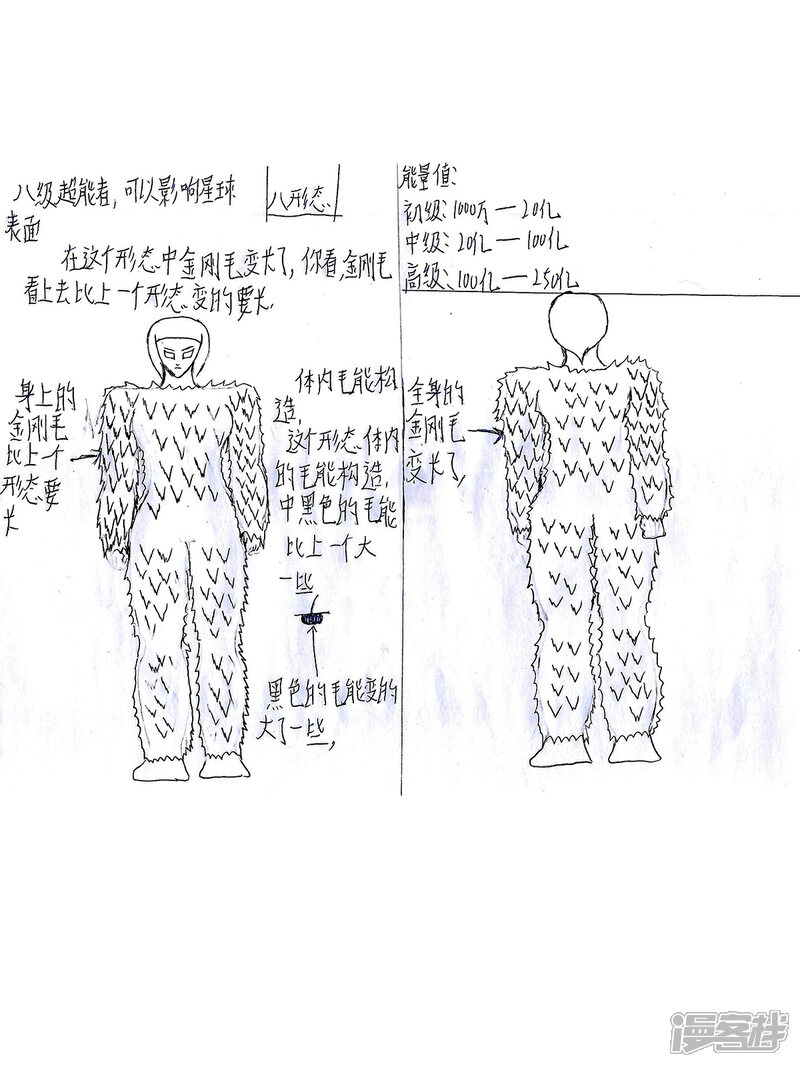 八级超能者,可以影响星球
表面
八形态
在这个形态中金刚毛变长了,你看,金刚毛
看上去比上一个形态变的要长.
身上的
金刚毛
比上一个
形态要
长
体内毛能构
造,
这个形态体内
的毛能构造,
中黑色的毛能
比上一个大
一些
黑色的毛能变的
大了一些,
能量值:
初级:1000万—20亿
中级:20亿—100亿
高级:100亿—250亿
全身的
金刚毛
变长了,
漫客栈